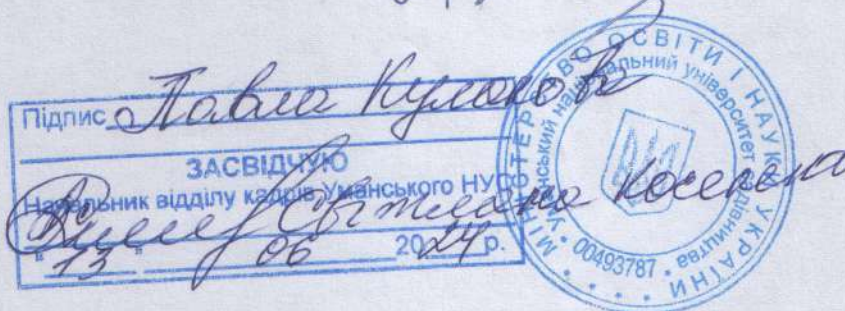 Підпис Павла Кулакова
ЗАСВІДЧУЮ
Начальник відділу кадрів Уманського НУС
Світлана
" 13 " 06 2024 р.
МІНІСТЕРСТВО ОСВІТИ І НАУКИ УКРАЇНИ
Уманський національний університет садівництва
00493787